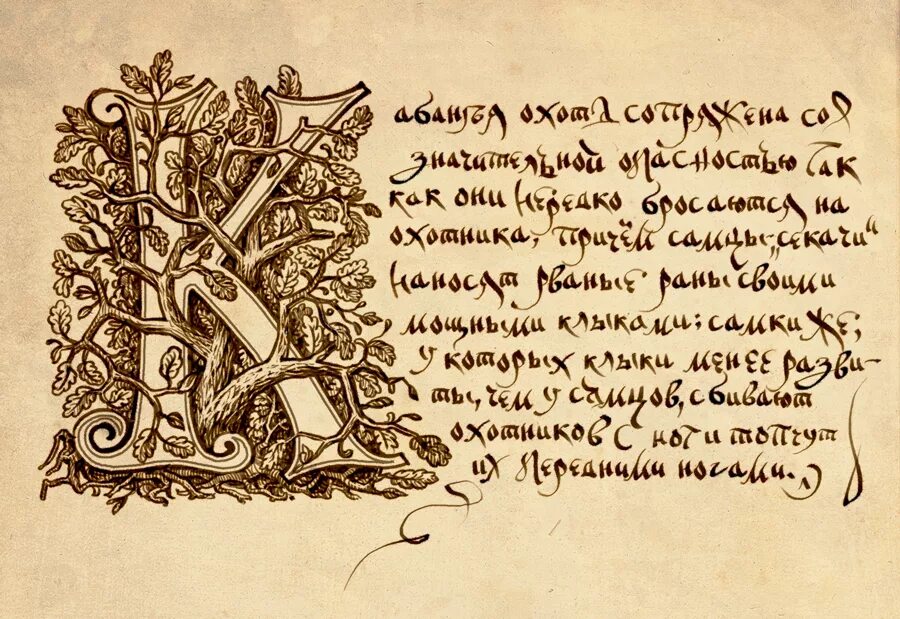 Кабанья охота сопряжена со
значительной опасностью так
как они нередко бросаются на
охотника, причём самцы „секачи“
наносят рваные раны своими
мощными клыками; самки же,
у которых клыки менее разви-
ты, чем у самцов, сбивают
охотников с ног и топчут
их передними ногами.